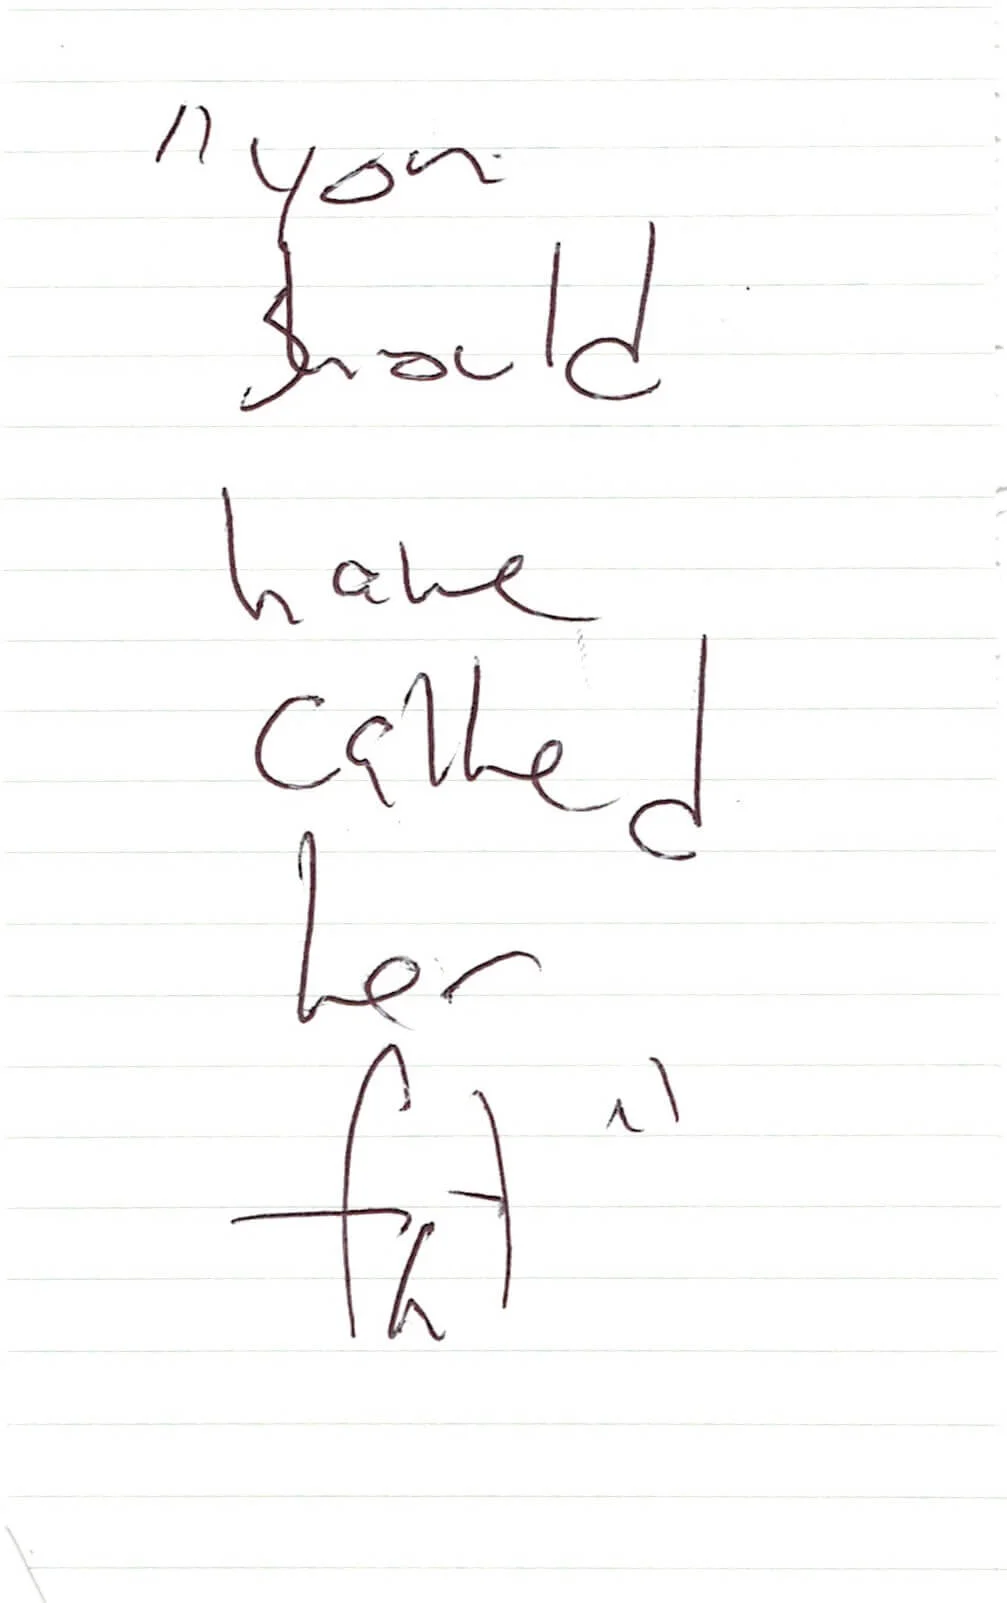 "you
should
have
called
her
fat"